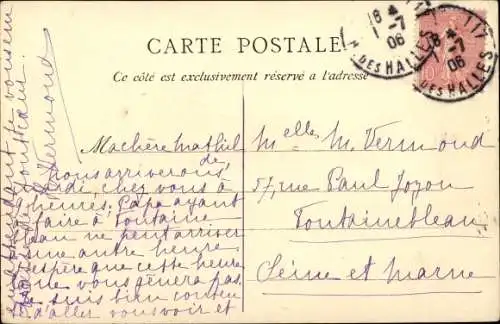 CARTE POSTALE
Ce côté est exclusivement réservé à l'adresse
18 4
1 -7
06
DES HALLES
117
18 4
-7
06
DES HALLES
10
Ma chère Mathil
de,
nous arriverons
jeudi, chez vous à
9 heures. Papa ayant
à faire à Fontaine
bleau ne peut arriver
à une autre heure.
J'espère que cette heure
ne vous gênera pas.
Je suis bien conten
te d'aller vous voir et
en attendant je vous em
Vermond
Melles M. Vermond
57, rue Paul Jozon
Fontainebleau
Seine et Marne